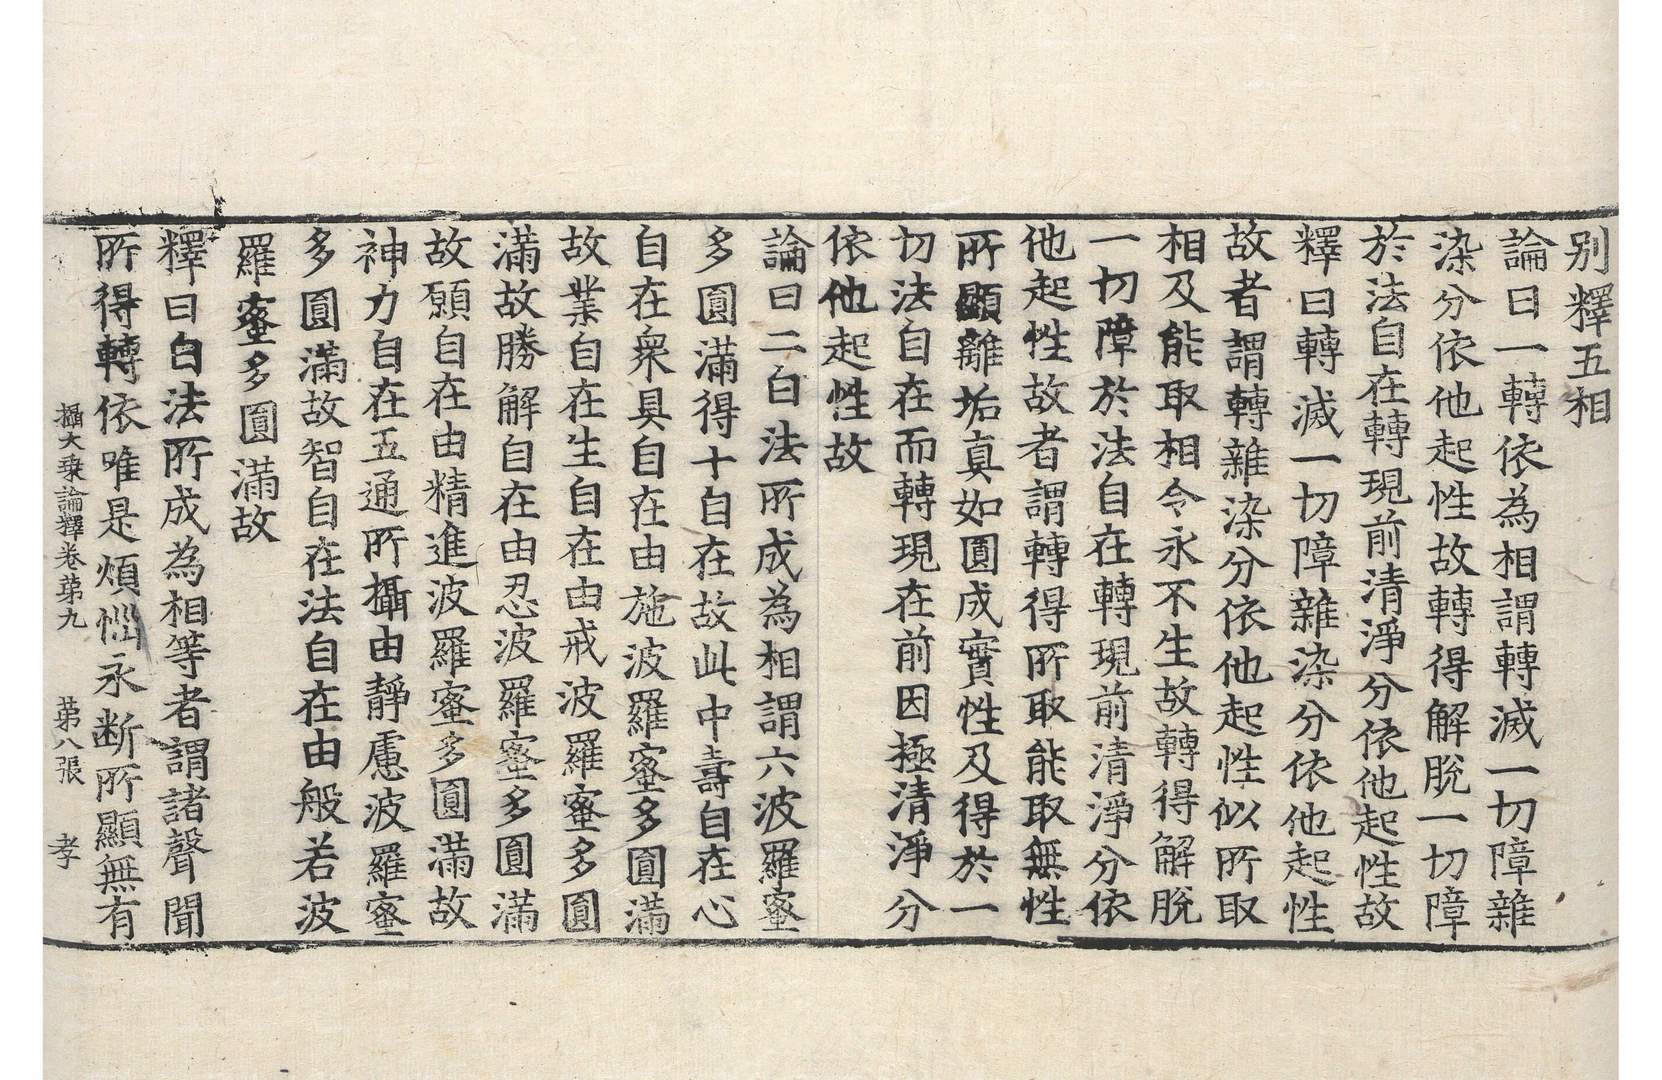 別釋五相
論曰一轉依為相謂轉滅一切障雜
染分依他起性故轉得解脫一切障
於法自在轉現前清淨分依他起性故
釋曰轉滅一切障雜染分依他起性
故者謂轉雜染分依他起性似所取
相及能取相令永不生故轉得解脫
一切障於法自在轉現前清淨分依
他起性故者謂轉得所取能取無性
所顯離垢真如圓成實性及得於一
切法自在而轉現在前因極清淨分
依他起性故
論曰二白法所成為相謂六波羅蜜
多圓滿得十自在故此中壽自在心
自在衆具自在由施波羅蜜多圓滿
故業自在生自在由戒波羅蜜多圓
滿故勝解自在由忍波羅蜜多圓滿
故願自在由精進波羅蜜多圓滿故
神力自在五通所攝由靜慮波羅蜜
多圓滿故智自在法自在由般若波
羅蜜多圓滿故
釋曰白法所成為相等者謂諸聲聞
所得轉依唯是煩惱永断所顯無有
攝大乘論釋卷苐九 苐八張 孝